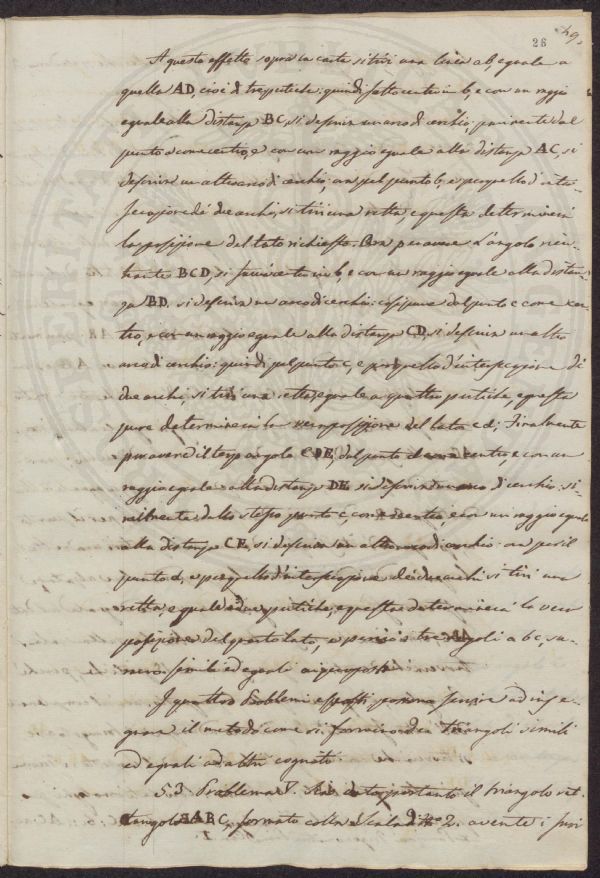 26 49.
A questo effetto sopra la carta si tiri una linea ab, eguale a
quella AD, cioè di tre pertiche: quindi fatto centro in b, e con un raggio
eguale alla distanza BC, si descriva un arco di cerchio; parimente dal
punto a come centro, e con un raggio eguale alla distanza AC, si
descriva un altro arco di cerchio, ora pel punto b, e per quello d'inter-
secazione dei due archi, si tiri una retta, e questa determinerà
la posizione del lato richiesto. Per avere l'angolo rien-
trante BCD, si faccia centro in b, e con un raggio eguale alla distan-
za BD, si descriva un arco di cerchio: così pure dal punto c come cen-
tro, e con un raggio eguale alla distanza CD, si descriva un altro
arco di cerchio: quindi pel punto c, e per quello d'intersecazione di
due archi, si tiri una retta, eguale a quattro pertiche, e questa
pure determinerà la vera posizione del lato cd; Finalmente
per avere il terzo angolo CDE, dal punto d come centro, e con un
raggio eguale alla distanza DE si descriva un arco di cerchio, si-
milmente dallo stesso punto c, come centro, e con un raggio eguale
alla distanza CE, si descriva un altro arco di cerchio: ora per il
punto d, e per quello d'intersecazione dei due archi si tiri una
retta, eguale a due pertiche, e questa determinerà la vera
posizione del quarto lato, e perciò i tre angoli abc, sa-
ranno simili ed eguali ai proposti.
I quattro Problemi esposti possono servire ad inse-
gnare il metodo come si formino dei Triangoli simili
ed eguali ad altri cogniti.
53 Problema V. Sia dato pertanto il triangolo ret-
tangolo ABC, formato colla Scala N.o 2. avente i suoi